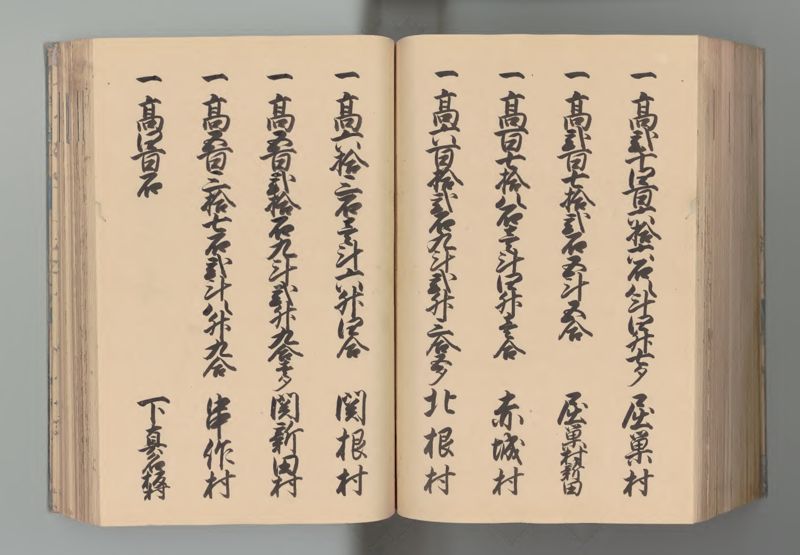 一 高弐千四百六拾六石八斗四升七夕 屈巣村
一 高弐百七拾弐石五斗五合 屈巣村新田
一 高百七拾八石壱斗四升壱合 赤城村
一 高六百拾弐石九斗弐升三合五夕 北根村
一 高六拾三石壱斗六升四合 関根村
一 高五百弐拾石九斗弐升九合壱夕 関新田村
一 高五百三拾七石弐斗八升九合 串作村
一 高四百石 下真名村